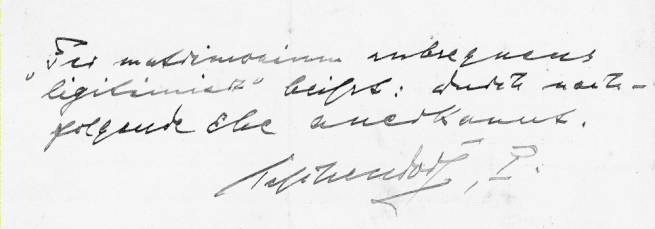 „Per matrimonium subsequens
ligitimiert“ heißt: durch nach-
folgende Ehe anerkannt.
, P.